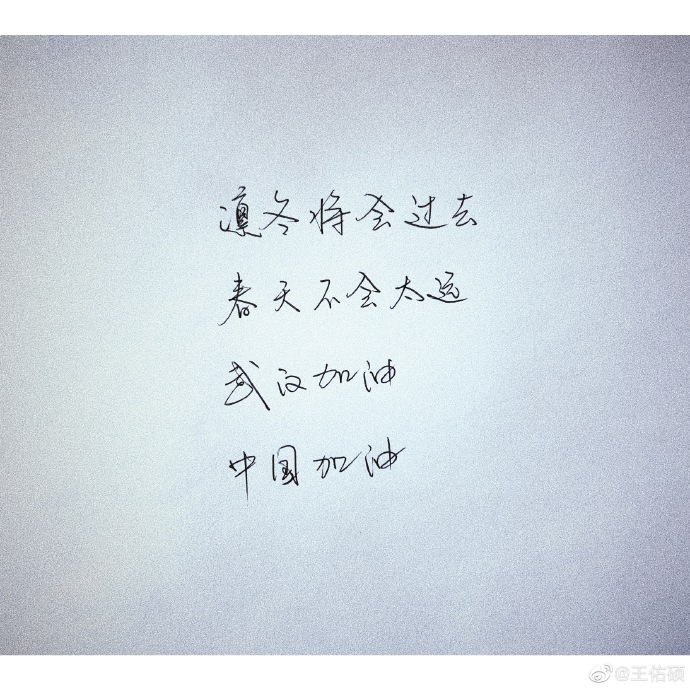 凛冬将会过去
春天不会太远
武汉加油
中国加油
@王佑硕